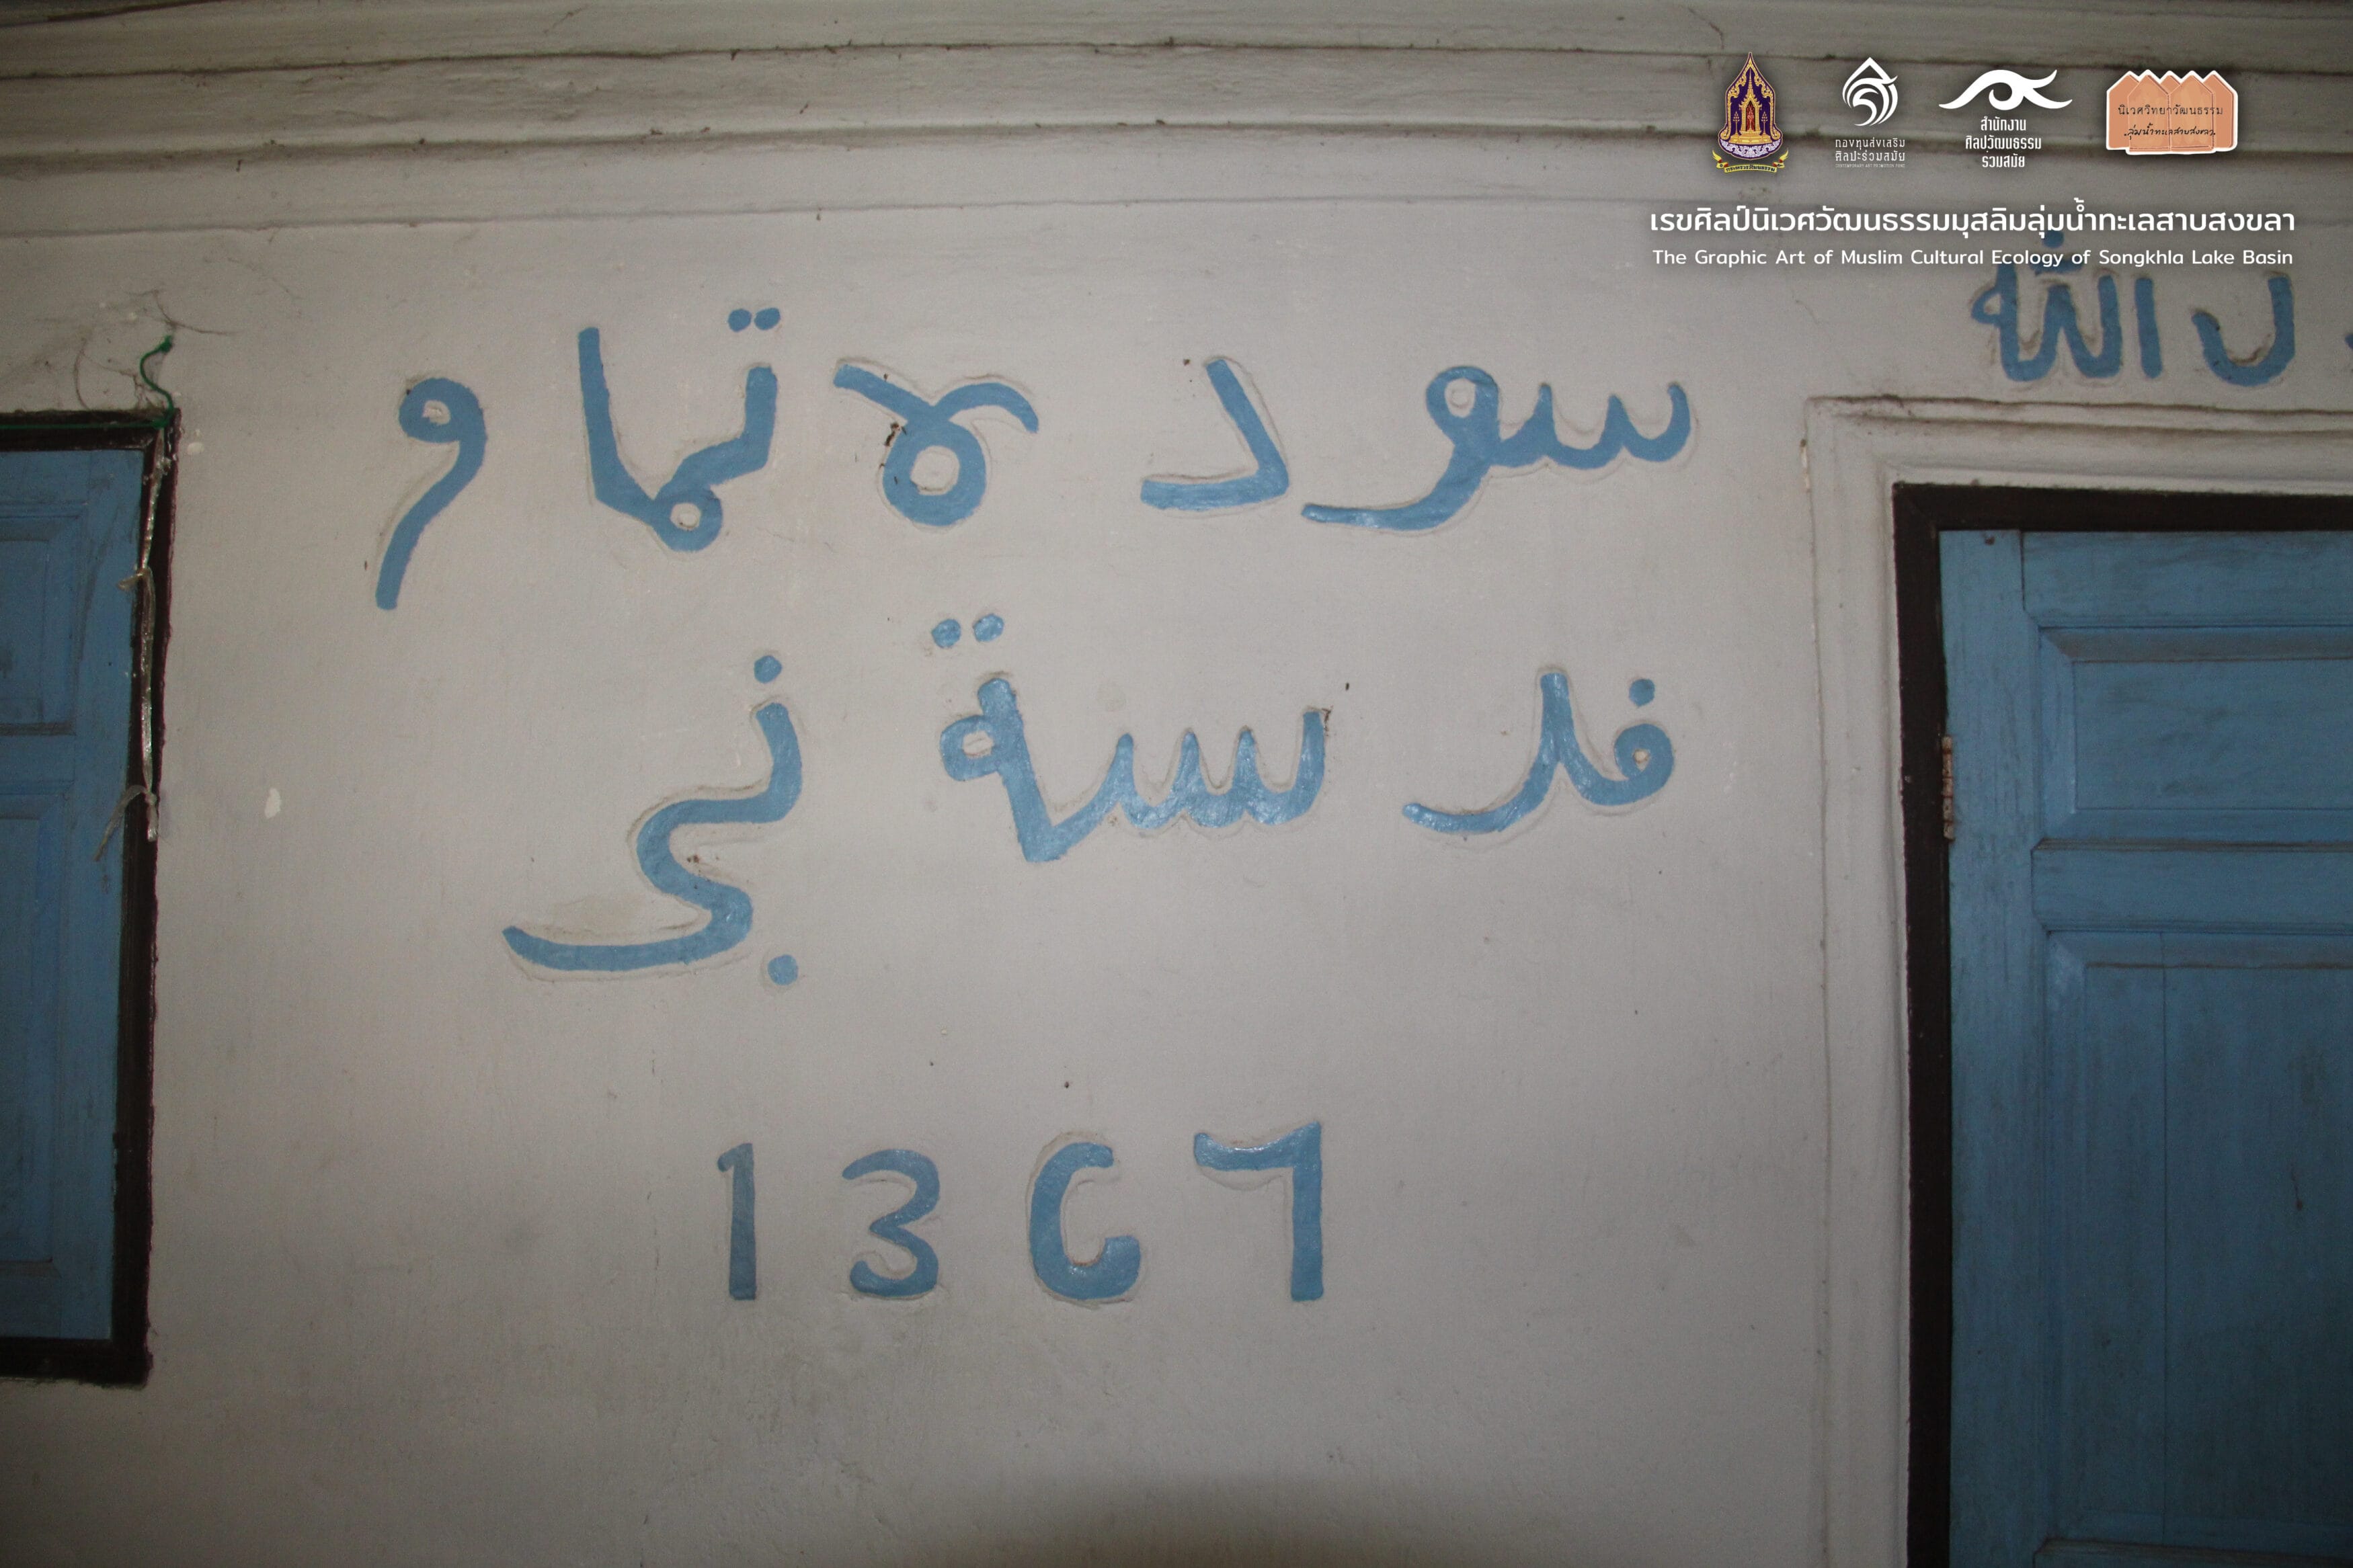 กองทุนส่งเสริม
ศิลปะร่วมสมัย
สำนักงาน
ศิลปวัฒนธรรม
ร่วมสมัย
นิเวศวิทยาวัฒนธรรม
ลุ่มน้ำทะเลสาบสงขลา
เรขศิลป์นิเวศวัฒนธรรมมุสลิมลุ่มน้ำทะเลสาบสงขลา
The Graphic Art of Muslim Cultural Ecology of Songkhla Lake Basin
سود لاتماو
فد سنة نبي
1367